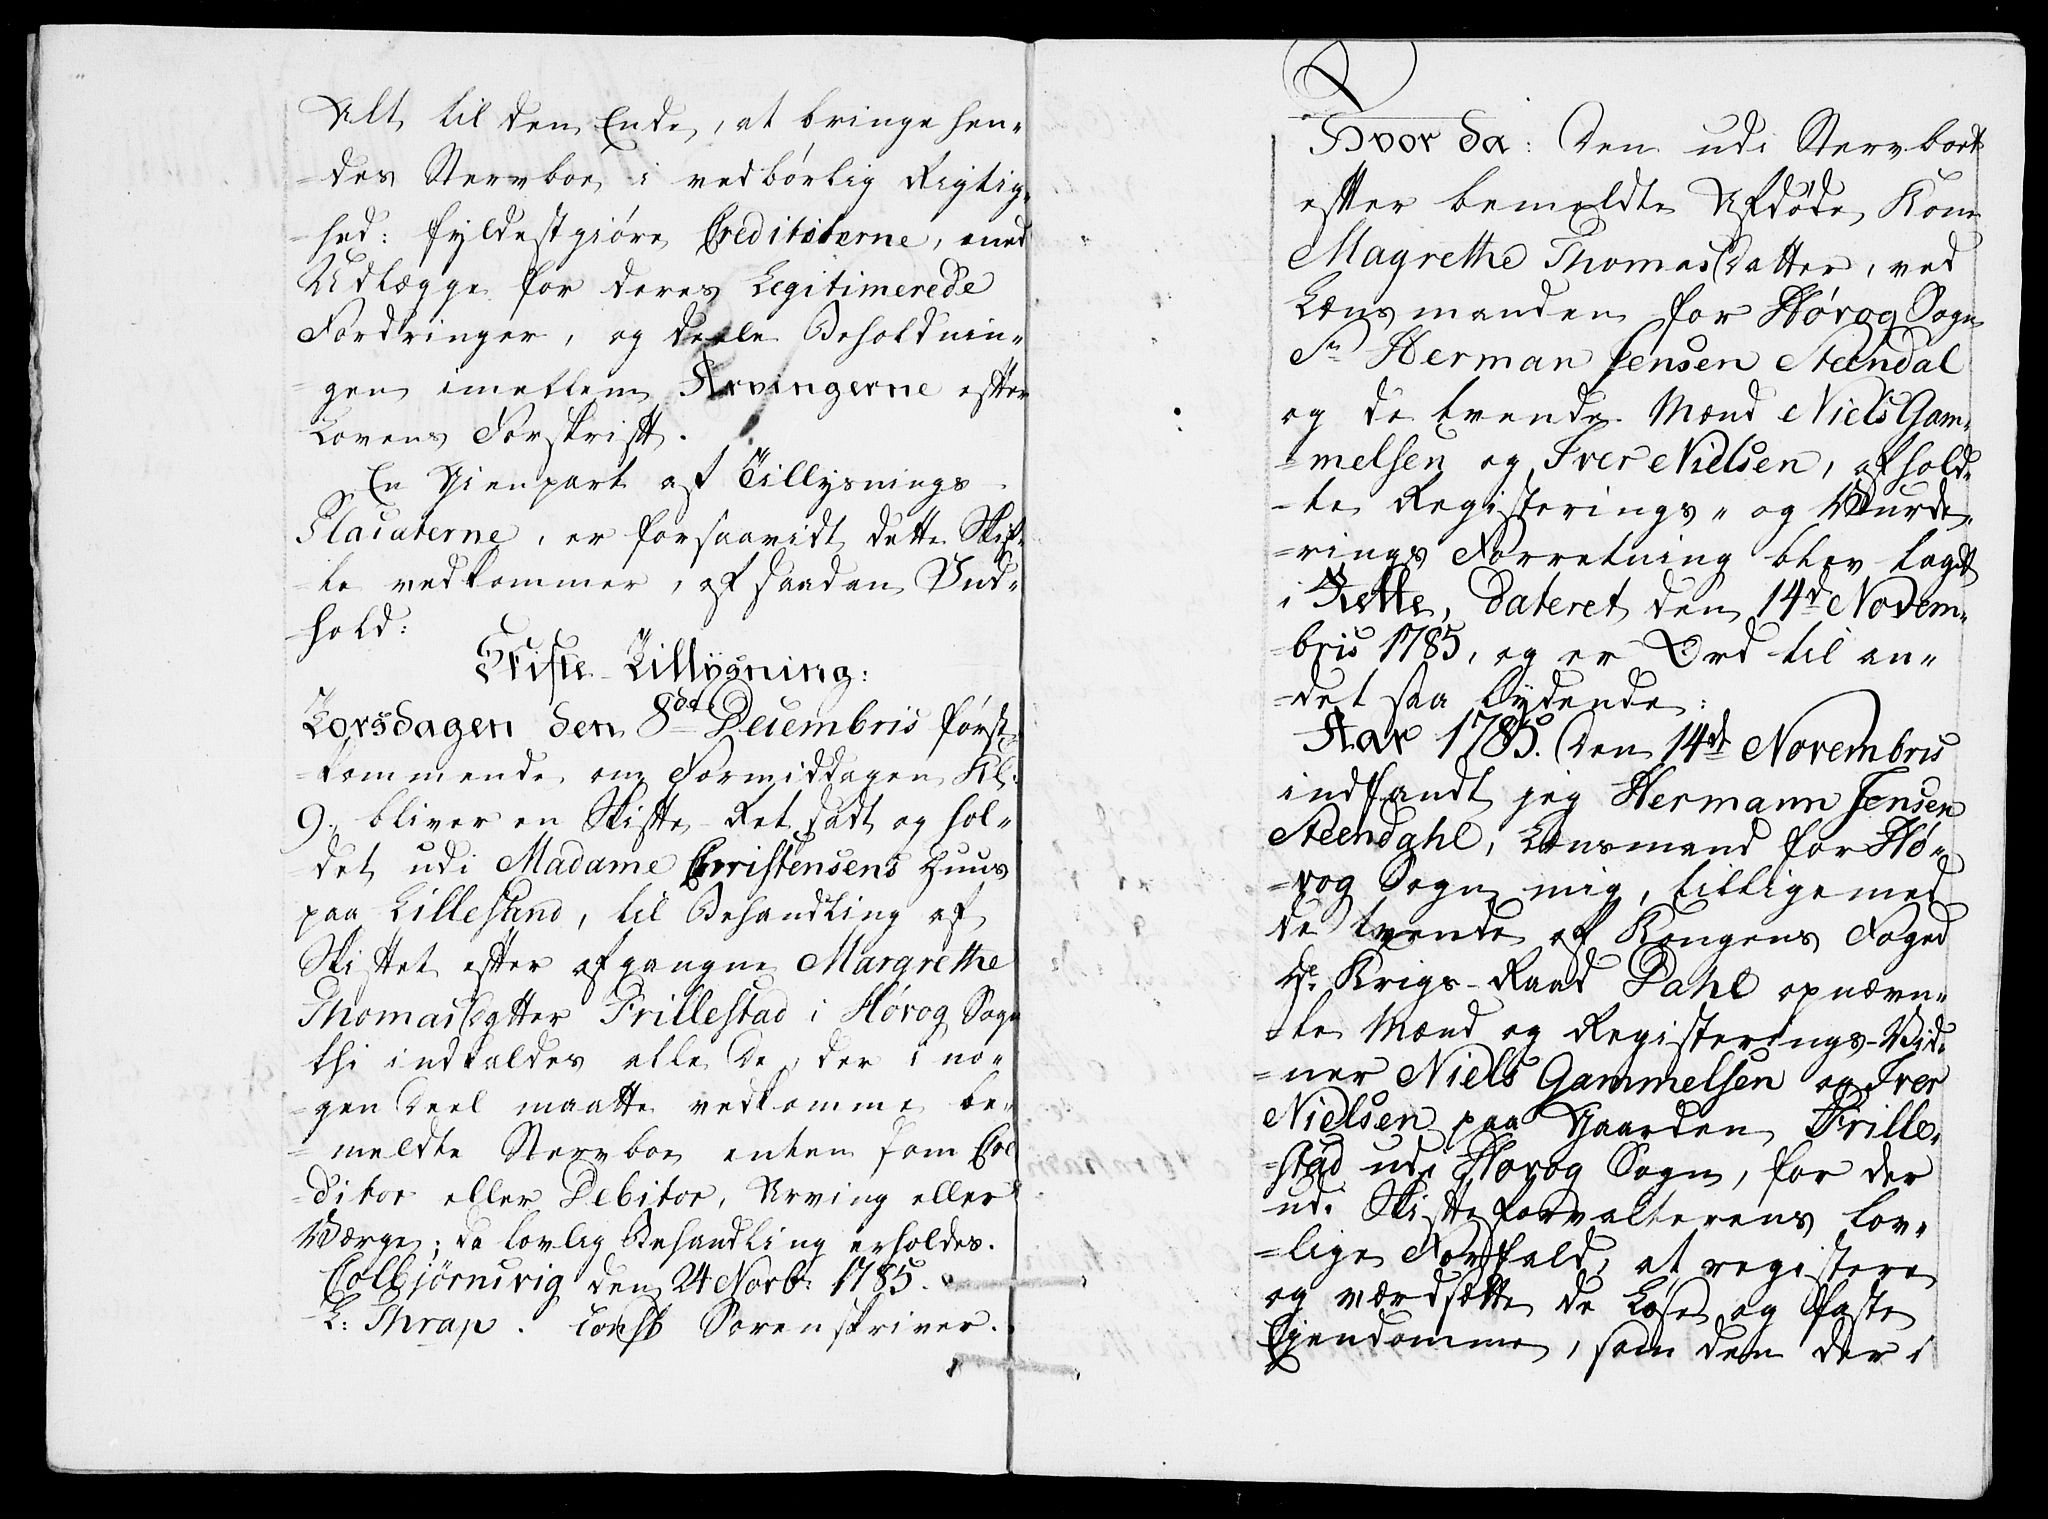 Alt til den Ende, at bringe hen-
des Stervboe i vedbørlig Rigtig-
hed: fyldestgiøre Creditorerne, med
Udlægge for deres Legitimerede
Fordringer, og deele Beholdnin-
gen imellem Arvingerne efter
Lovens Forskrift.
En Gienpart af Tillysnings
Placaterne, er forsaavidt dette Skif-
te vedkommer, af saadan Ind-
hold:
Skifte-Tillysning:
Torsdagen den 8de Decembris først-
kommende om Formiddagen Kl:
9. bliver en Skifte-Ret sadt og hol-
det udi Madame Christensens Huus
paa Lillesund, til Behandling af
Skiftet efter afgangne Margrethe
Thomasdatter Trillestad i Høvog Sogn
thi indkaldes alle De, der i no-
gen Deel maatte vedkomme be-
meldte Stervboe enten som Cre
ditor eller Debitor, Arving eller
Værge; da lovlig Behandling erholdes.
Colbjørnsvig den 24 Novb: 1785.
L: Thrap. Const Sorenskriver.
Hvor da: Den udi Stervboet
efter bemeldte Afdøde Kone
Magrethe Thomasdatter, ved
Lænsmanden for Høvog Sogn
Sr Herman Jensen Steendal
og de tvende Mænd Niels Gam-
melsen og Iver Nielsen, afhold-
te Registerings- og Vurde-
rings Forretning blev lagt
i Rette, dateret den 14de Novem-
bris 1785, og er Ord til an-
det saa lydende:
Aar 1785. den 14de Novembris
indfandt jeg Hermann Jensen
Steendahl, Lænsmand for Hø-
vog Sogn mig, tilligemed
de tvende af Kongens Foged
Hr. Krigs-Raad Dahl opnævn-
te Mænd og Registerings-Vid-
ner Niels Gammelsen og Iver
Nielsen paa Gaarden Trille-
stad udi Høvog Sogn, for der
udi Skifteforvalterens lov-
lige Forfald, at registere
og værdsætte de Løse og faste
Ejendomme, som den der i